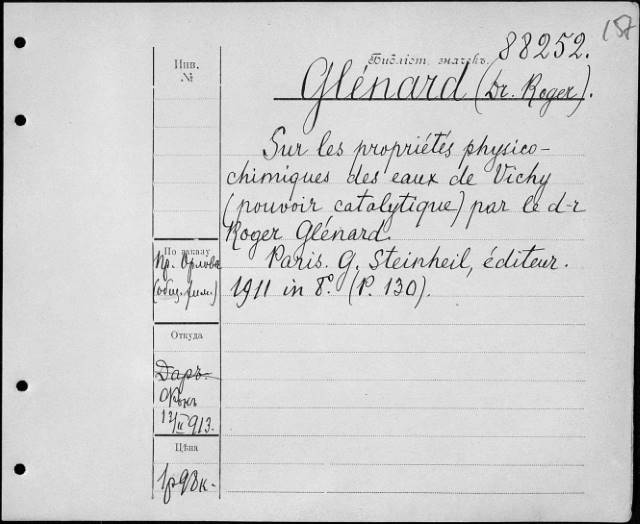 157
88252.
Библіот. значекъ.
Инв.
№
Glénard (Dr. Roger).
Sur les propriétés physico-
chimiques des eaux de Vichy
(pouvoir catalytique) par le d-r
Roger Glénard.
Paris. G. Steinheil, éditeur.
1911 in 8°. (P. 130).
По заказу
Пр. Орлова
(общ. хим.)
Откуда
Даръ
12/II 913.
Цѣна
1р 98к.